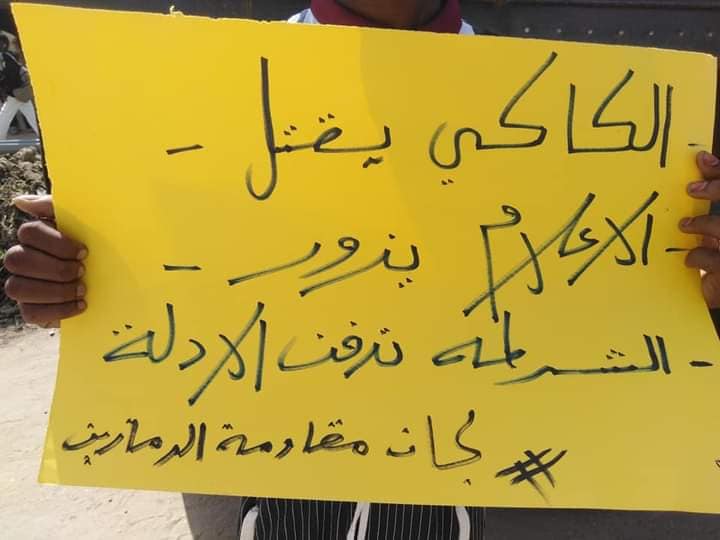 - الكاكي يقتل -
- الاعلام يزور -
- الشرطه تدفن الادلة
# لجان مقاومة الدمازين